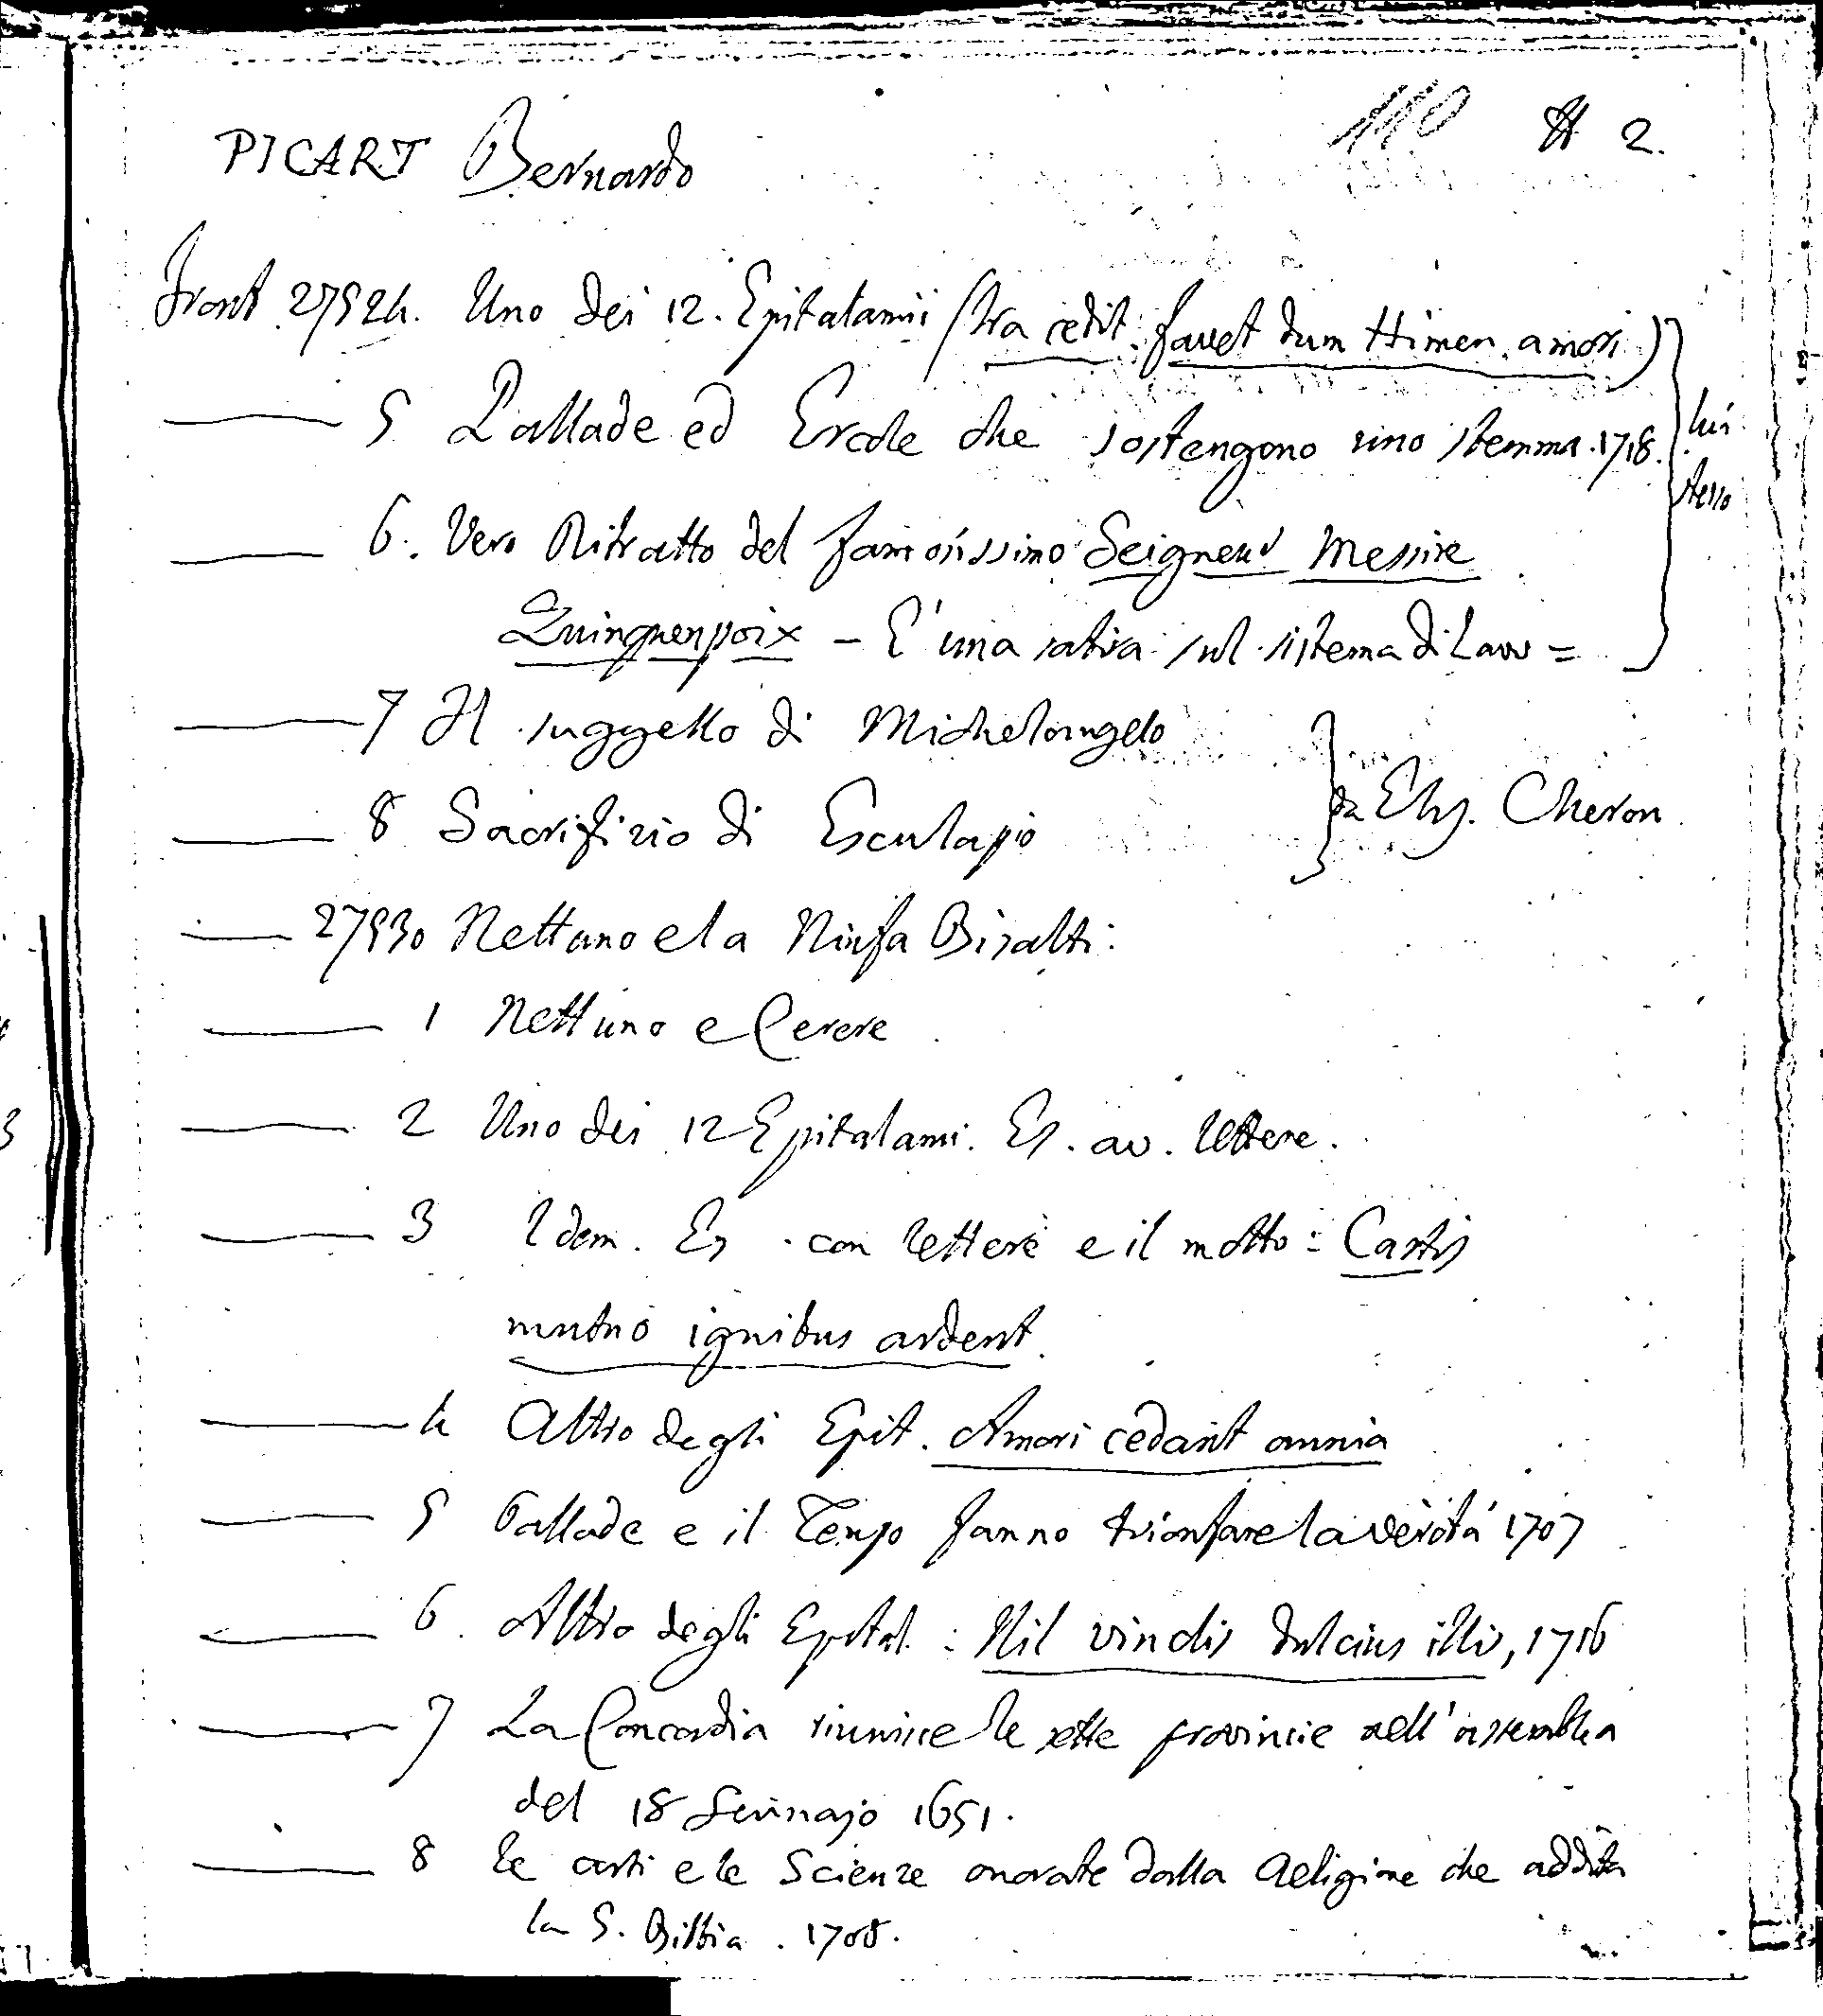 110 # 2.
PICART Bernardo
Front 27924. Uno dei 12. Epitalamii (Ira cedit: favet dum Himen. amori)
5 Pallade ed Ercole che sostengono uno stemma. 1718. lui
stesso
6. Vero Ritratto del famosissimo Seigneur Messire
Quinquenpoix - È una satira sul sistema di Law =
7 Il suggello di Michelangelo
8 Sacrifizio di Esculapio } da Elis. Cheron
27930 Nettuno e la Ninfa Bisalti:
1 Nettuno e Cerere
2 Uno dei 12 Epitalami. Es. av. lettere.
3 Idem. Es. con lettere e il motto: Castis
mutuo ignibus ardent.
4 Altro degli Epit. Amori cedant omnia
5 Pallade e il Tempo fanno trionfare la verità 1707
6. Altro degli Epital.: Nil vinclis dulcius illis, 1716
7 La Concordia riunisce le sette provincie nell'assemblea
del 18 Gennajo 1651.
8 Le arti e le Scienze onorate dalla Religione che addita
la S. Bibbia. 1708.